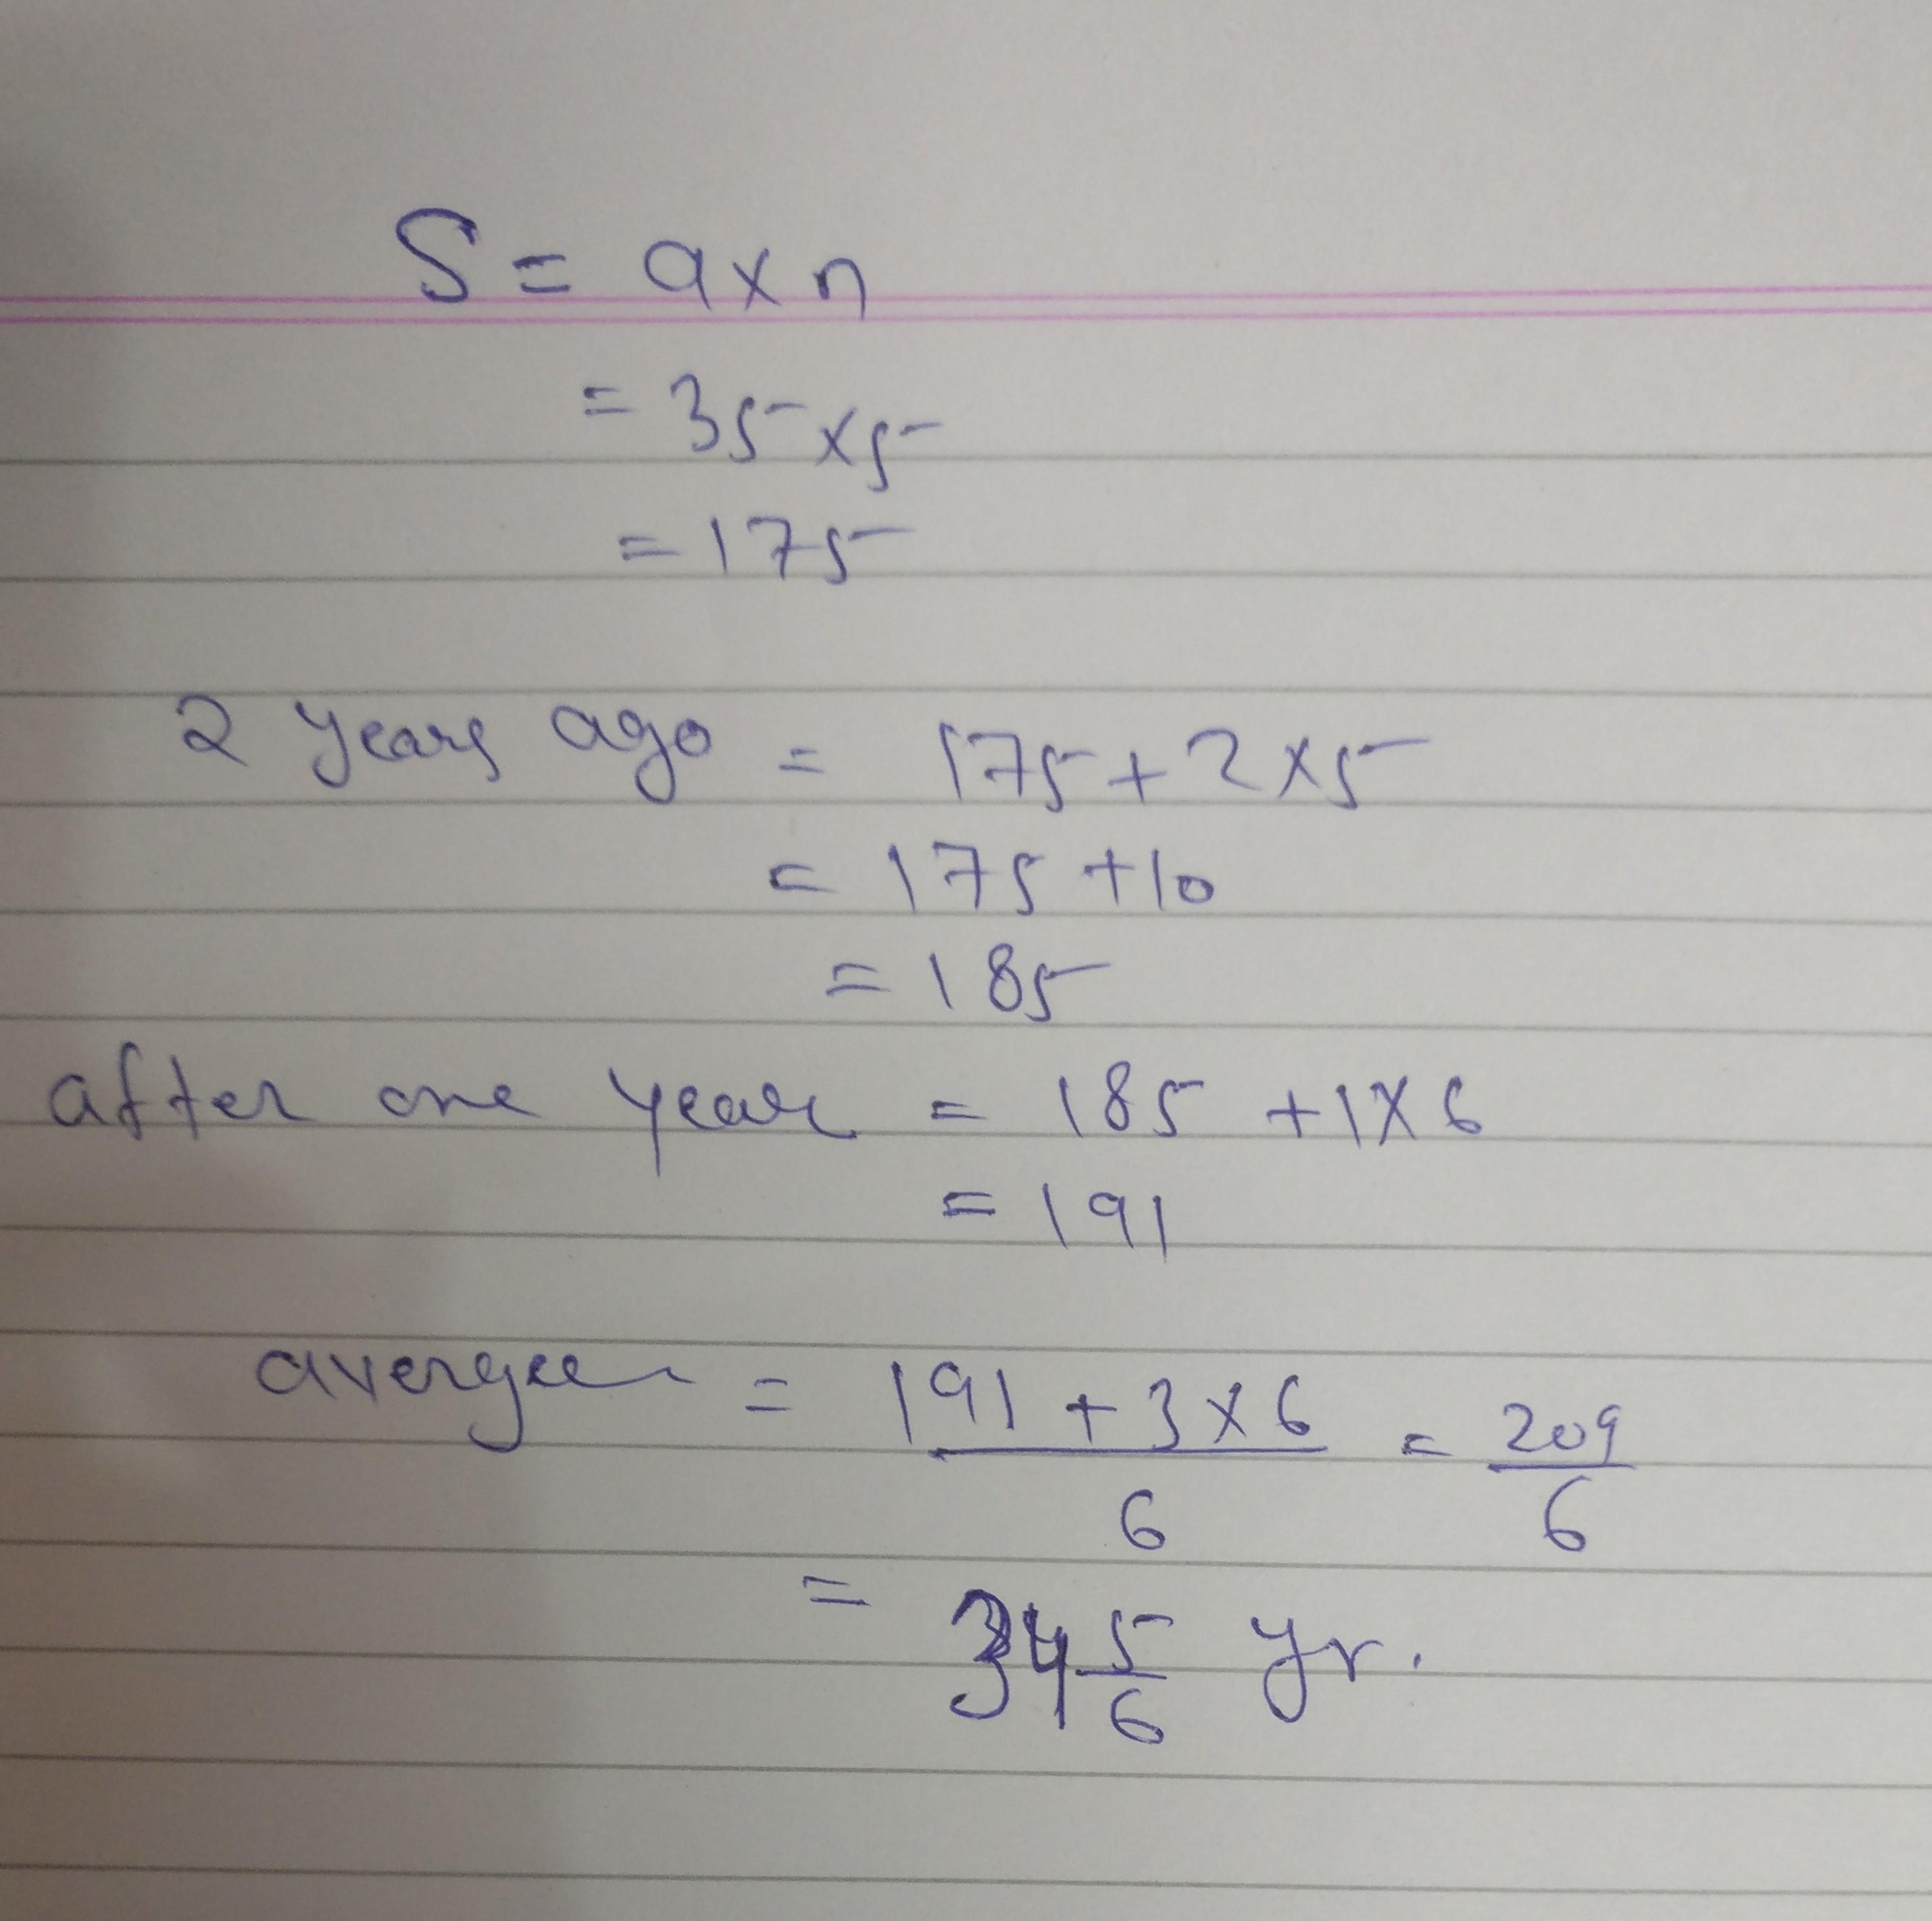 S = a x n
= 35 x 5
= 175
2 years ago = 175 + 2 x 5
= 175 + 10
= 185
after one year = 185 + 1 x 6
= 191
avergee = 191 + 3 x 6 / 6 = 209 / 6
= 34 5/6 yr.